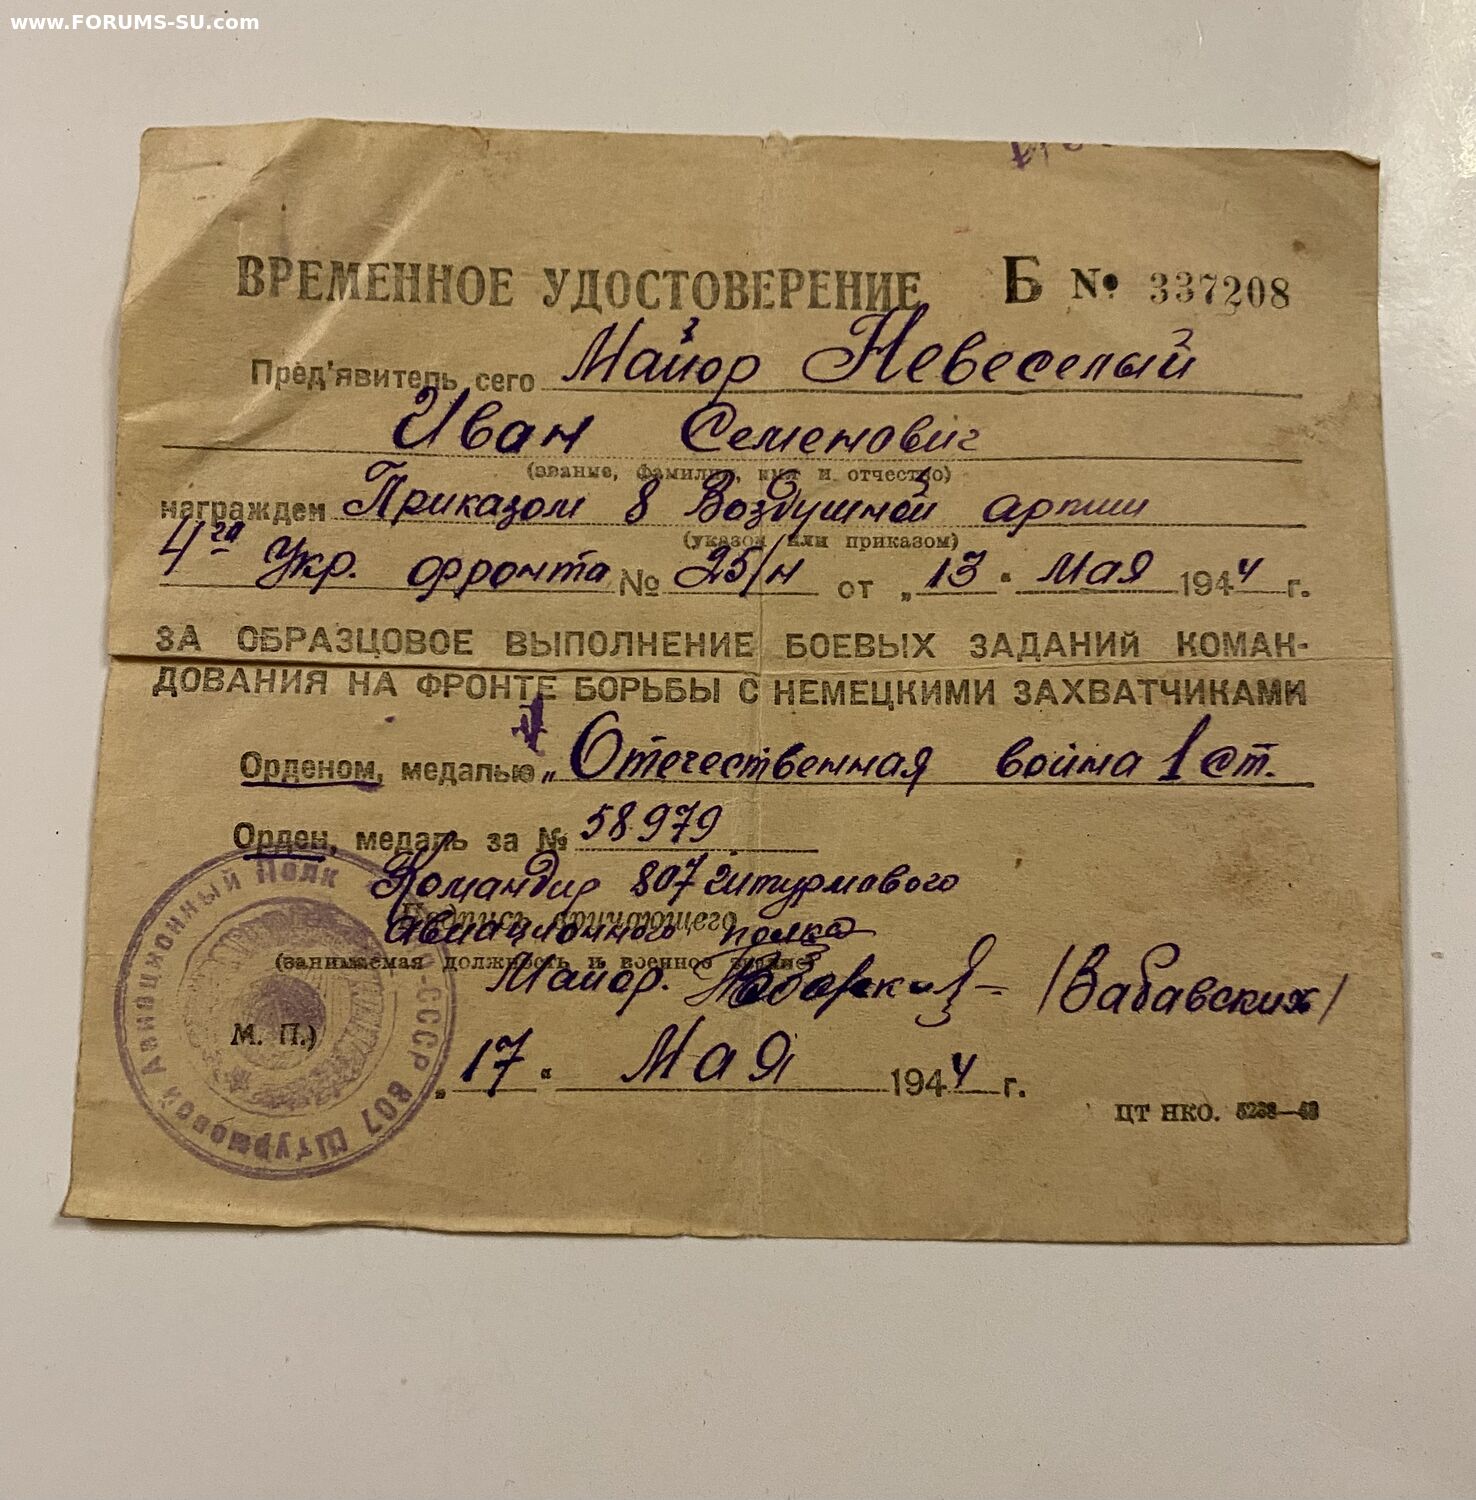 www.FORUMS-SU.com
ВРЕМЕННОЕ УДОСТОВЕРЕНИЕ Б № 337208
Пред'явитель сего Майор Невеселый
Иван Семенович
(звание, фамилия, имя и отчество)
награжден Приказом 8 Воздушной армии
(указом или приказом)
4го Укр. фронта № 25/н от „13" Мая 1944 г.
ЗА ОБРАЗЦОВОЕ ВЫПОЛНЕНИЕ БОЕВЫХ ЗАДАНИЙ КОМАН-
ДОВАНИЯ НА ФРОНТЕ БОРЬБЫ С НЕМЕЦКИМИ ЗАХВАТЧИКАМИ
Орденом, медалью „Отечественная война 1 ст.
Орден, медаль за № 58979
Командир 807 Штурмового
Подпись вручающего
авиационного полка
(занимаемая должность и военное звание)
Майор. /Бабавских/
М. П.)
„17" Мая 1944 г.
ЦТ НКО.
СССР 807 Штурмовой Авиационный Полк